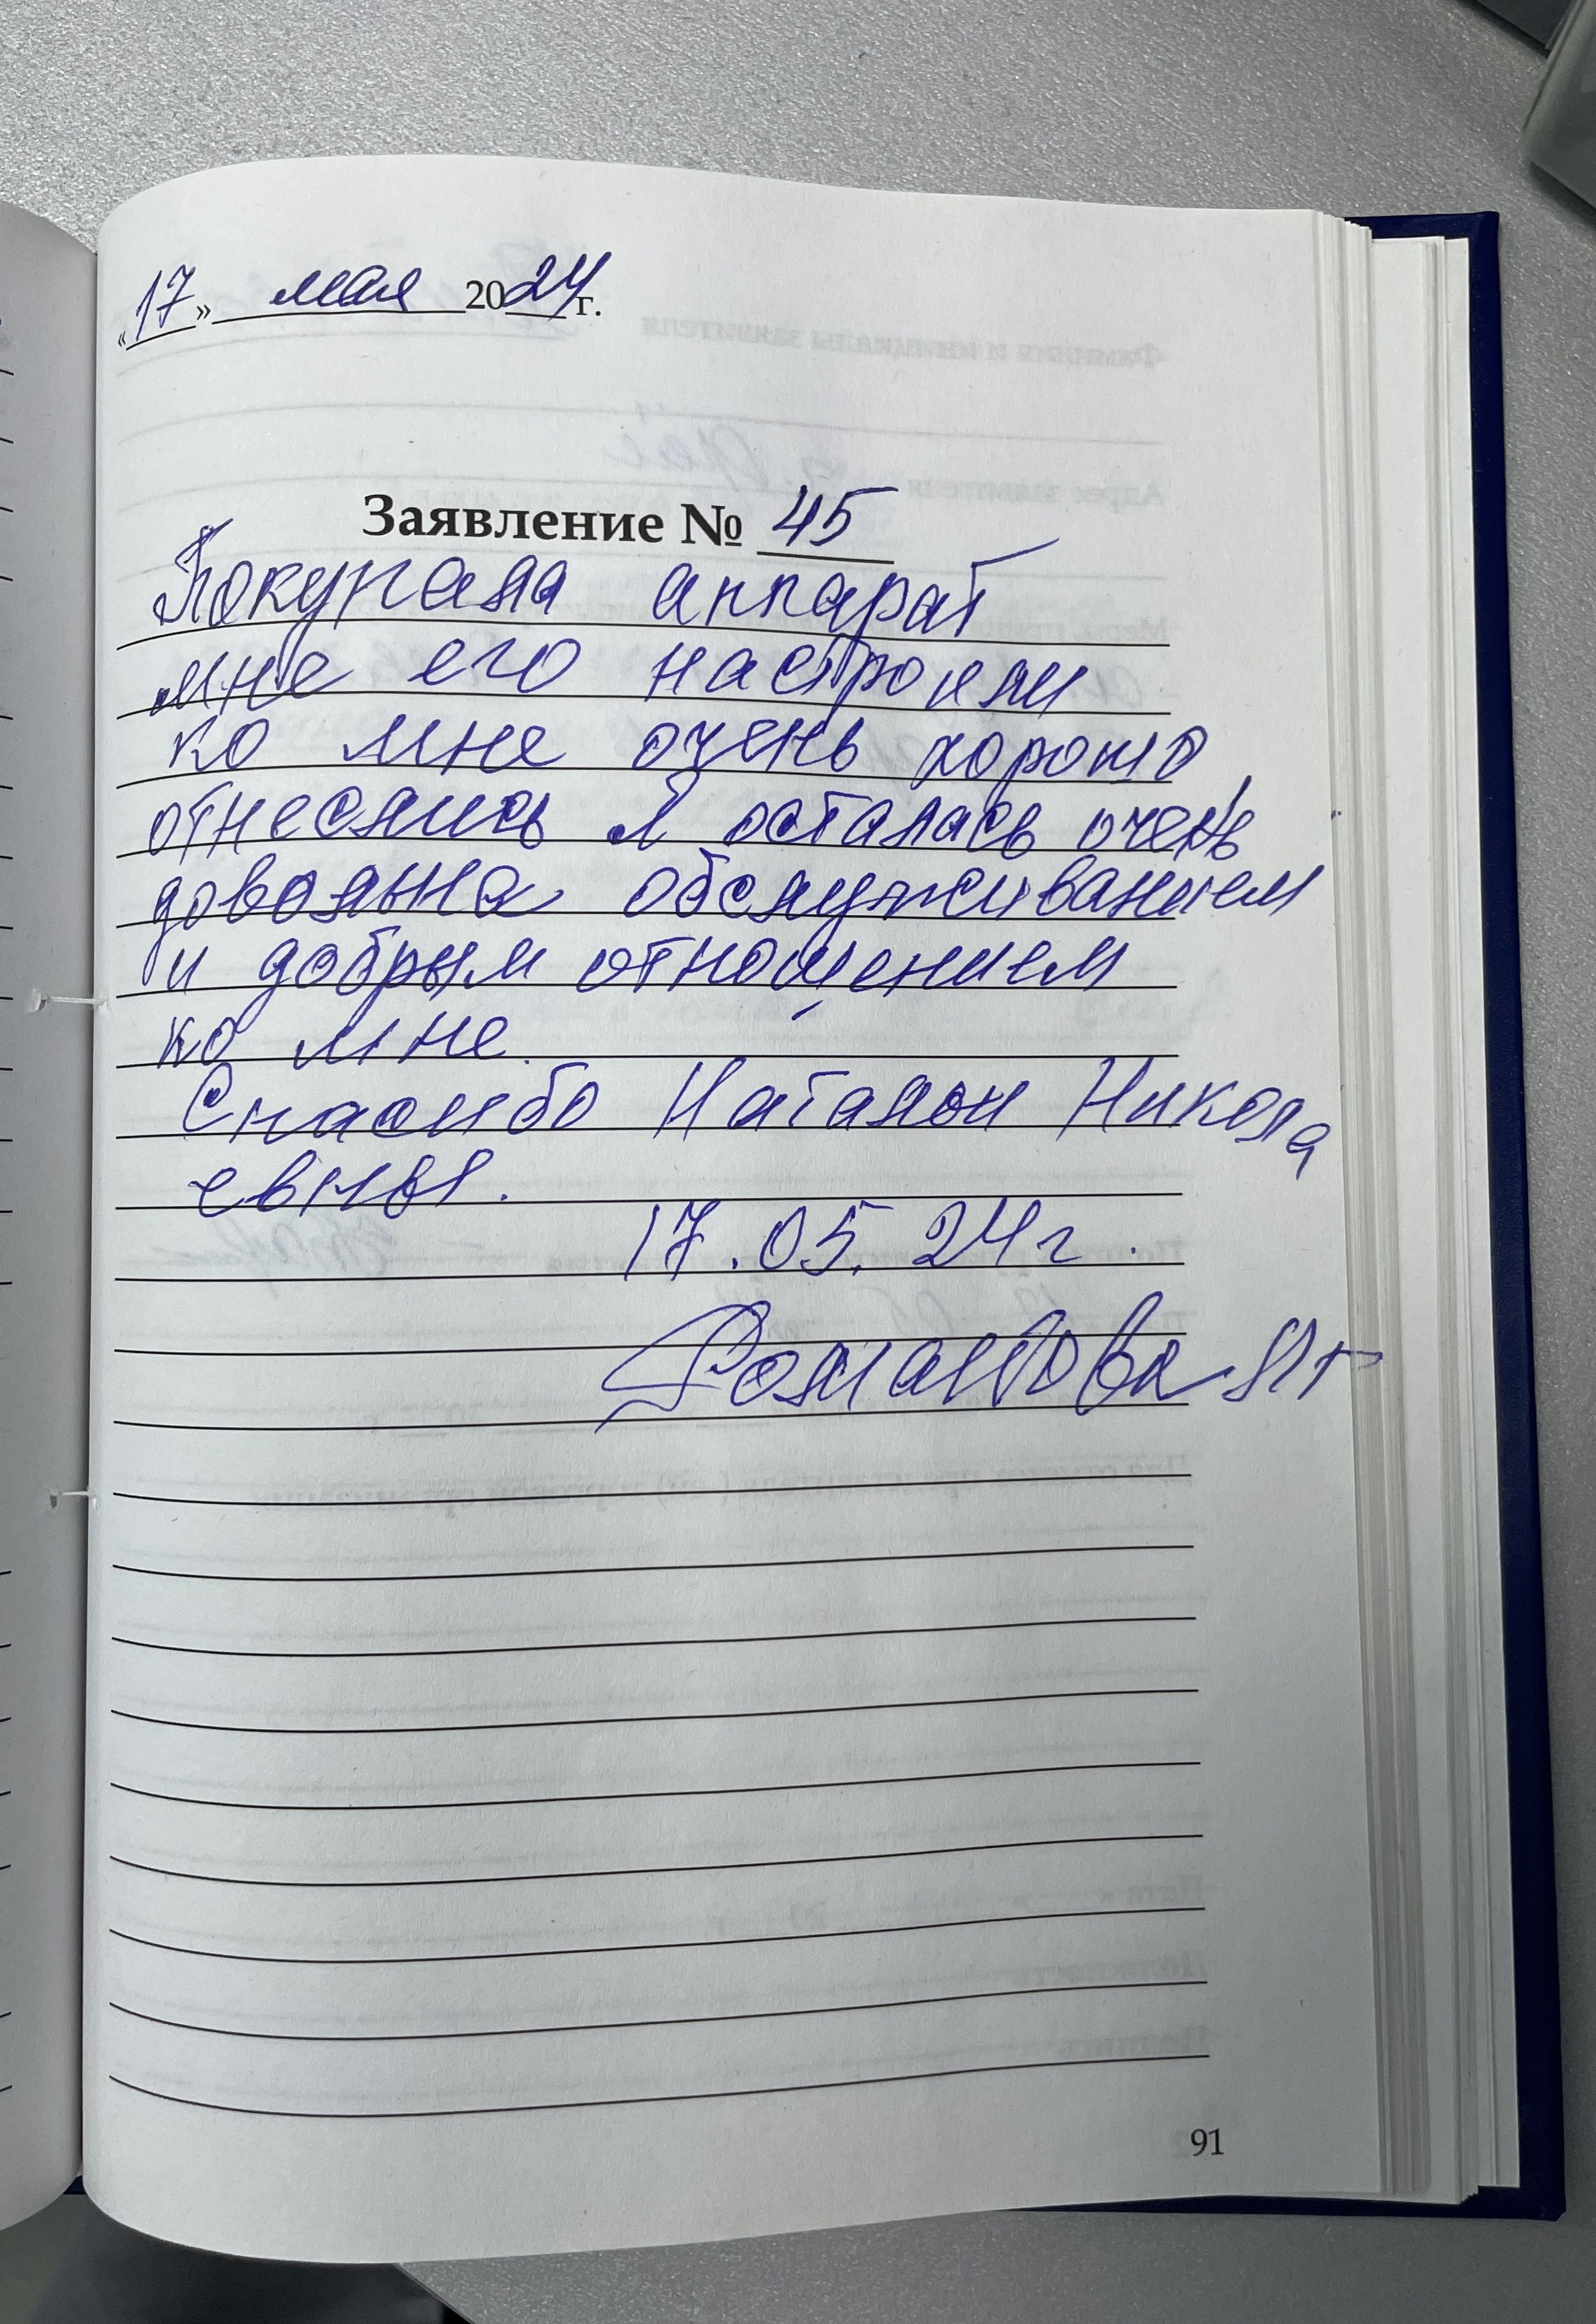 «17» мая 2024 г.
Заявление № 45
Покупала аппарат
мне его настроили
ко мне очень хорошо
отнеслись я осталась очень
довольна обслуживанием
и добрым отнощением
ко мне.
Спасибо Наталии Никола
евны.
17.05.24г.
Романова
91